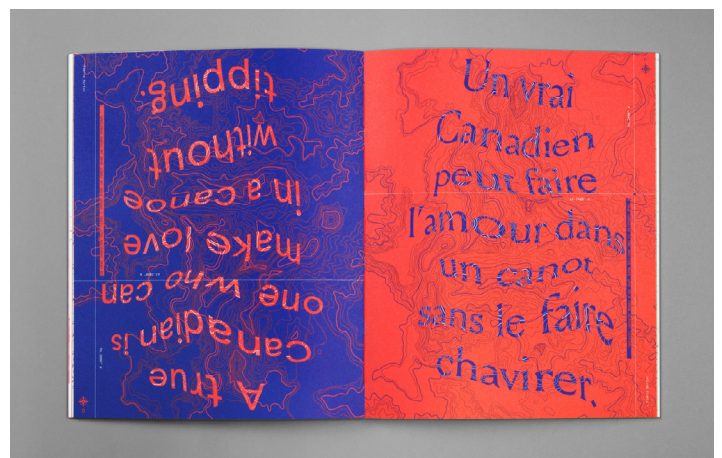 A true
Canadian is
one who can
make love
in a canoe
without
tipping.
Un vrai
Canadien
peut faire
l'amour dans
un canot
sans le faire
chavirer.